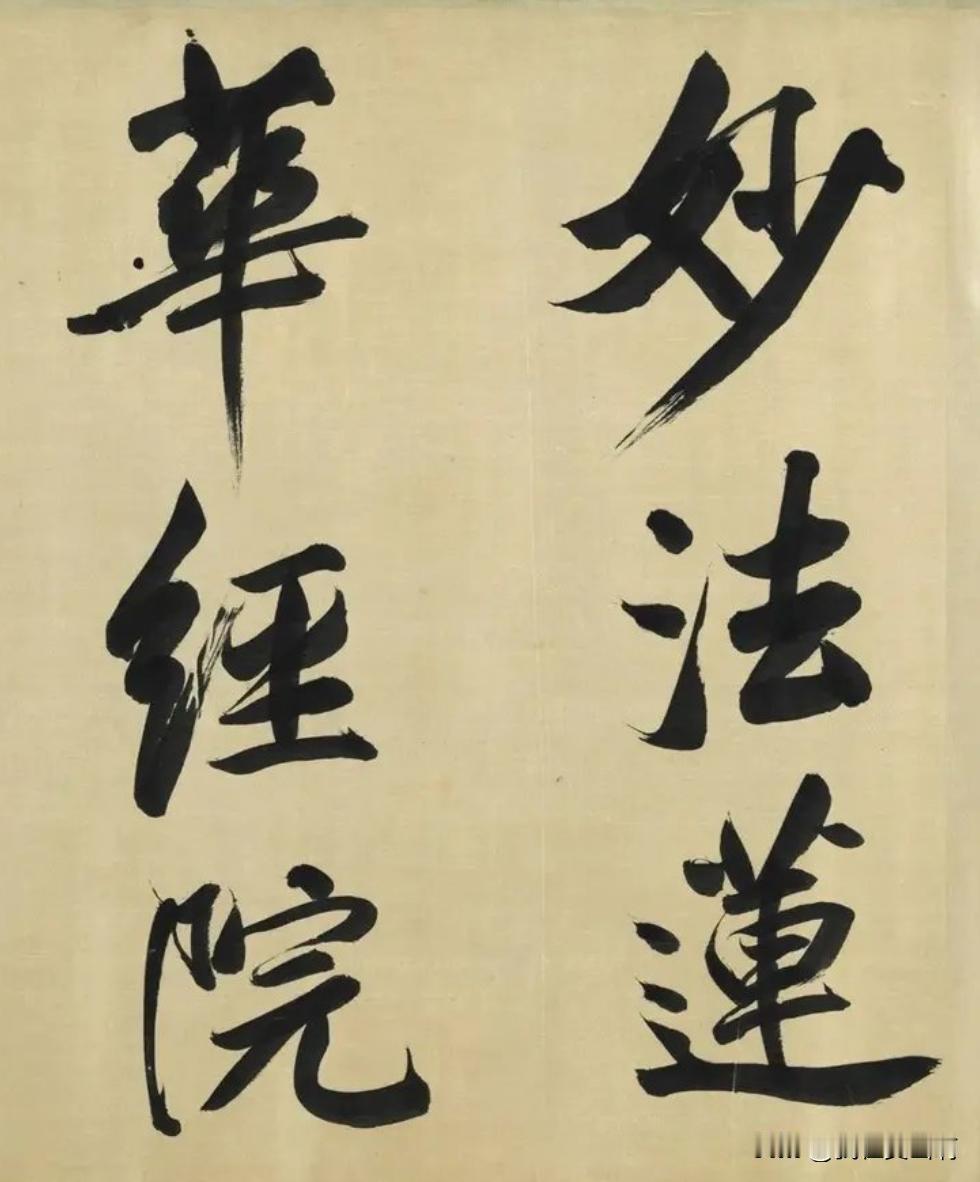 妙法蓮
華經院